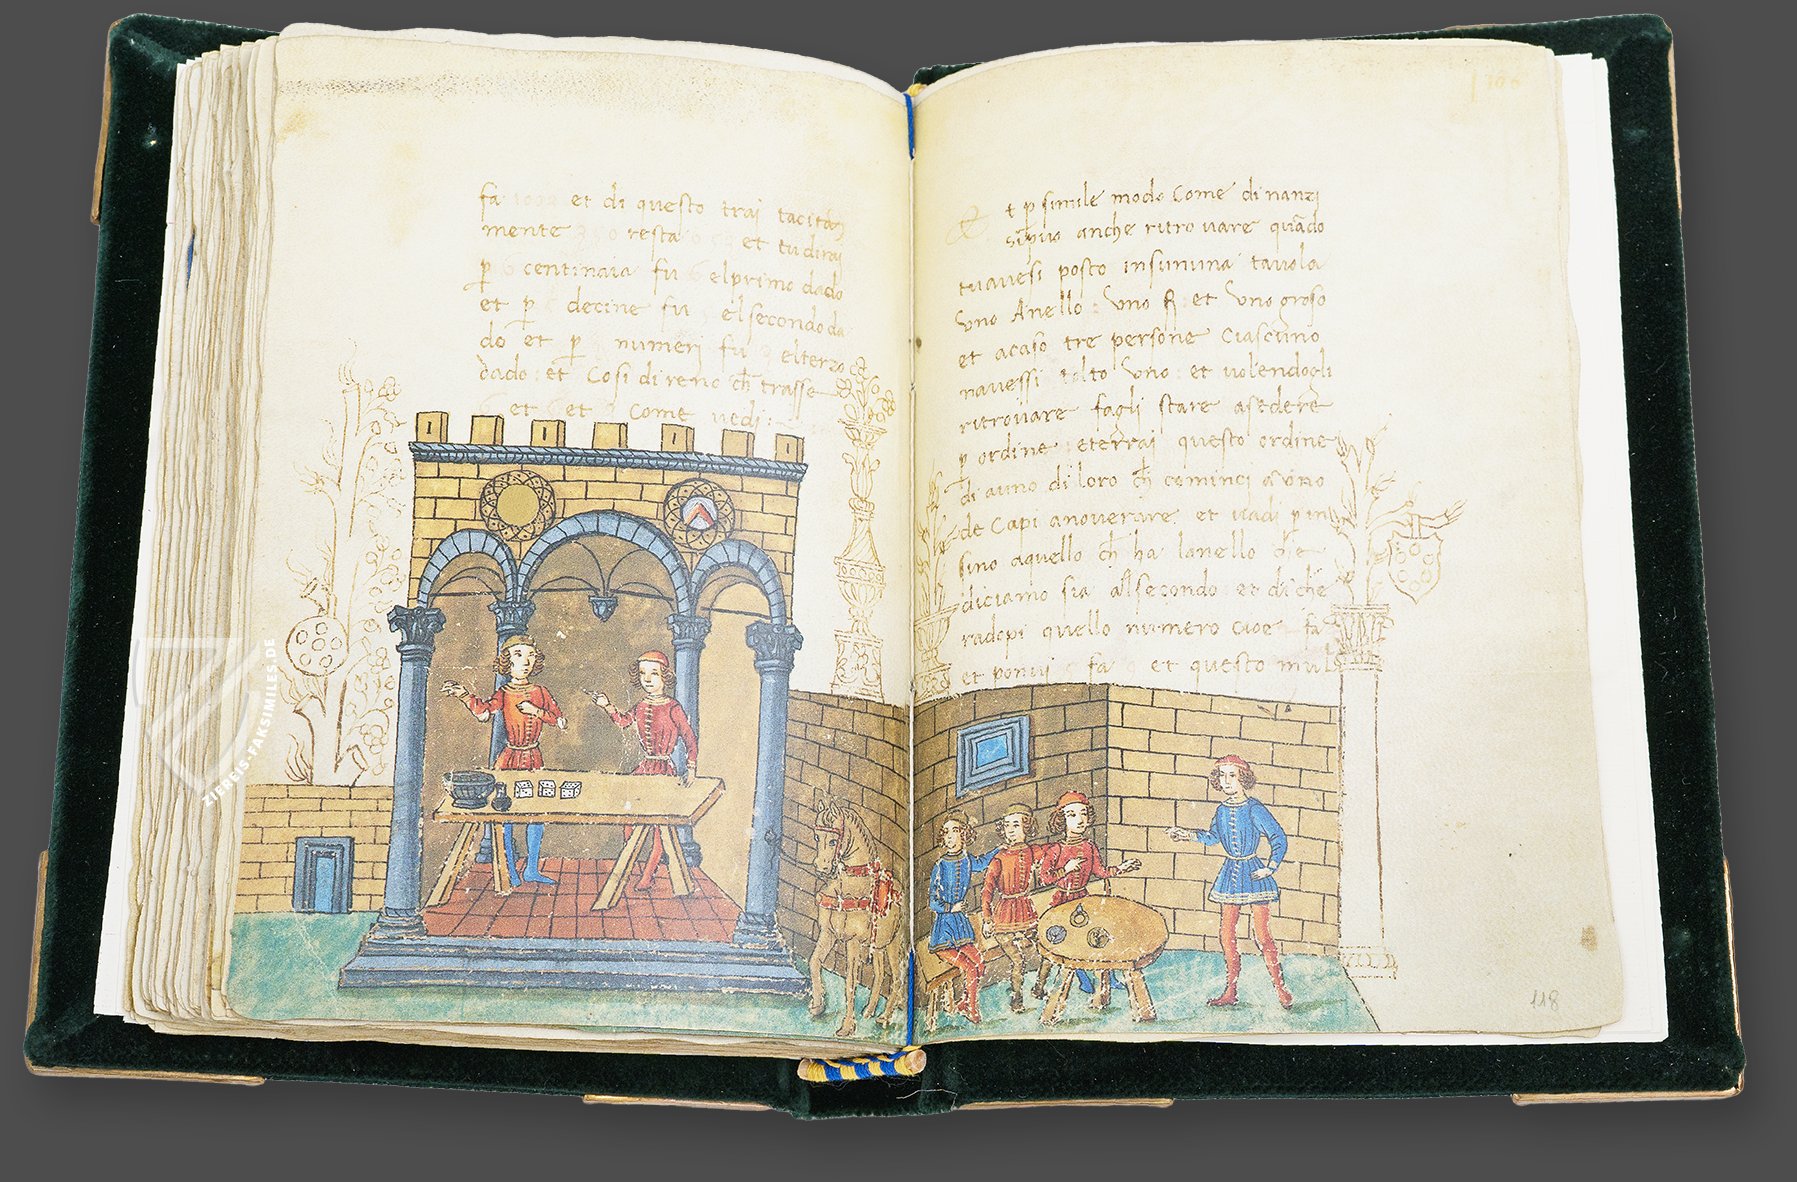 fa et di questo trai tacita
mente resta et tu dirai
p centinaia fu el primo dado
et p decine fu el secondo da
do et p numeri fu el terzo
dado et Cosi direno ch trasse
et et come vedi
Et p simile modo Come dinanzi
si puo anche ritrovare quado
tu avesi posto insununa tavola
uno Anello : uno et uno groso
et acaso tre persone Ciascuno
navessi tolto uno : et volendogli
ritrovare fagli stare asedere
p ordine : et terrai questo ordine
di auno di loro ch cominci a uno
de Capi anoverare et vadi p in
sino aquello ch ha lanello
diciamo sia al secondo et di che
radopi quello numero cioe fa
et ponvi fa et questo mul
118
ZIEREIS-FAKSIMILES.DE